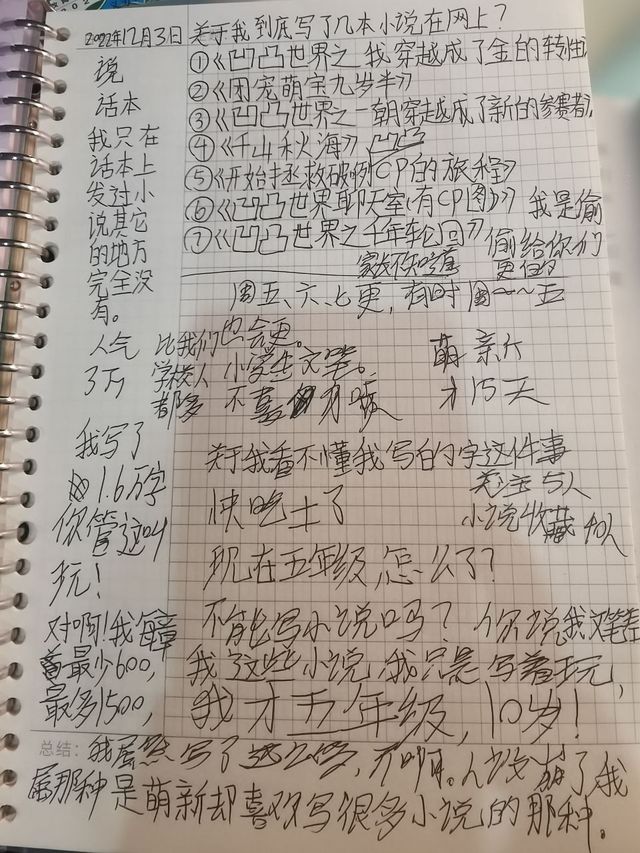 2022年12月3日 关于我到底写了几本小说在网上？
①《凹凸世界之我穿越成了金的转性
②《团宠萌宝九岁半》
③《凹凸世界之一朝穿越成了新的参赛者》
④《千山秋海》凹凸
⑤《开始拯救破咧CP的旅程》
⑥《凹凸世界聊天室(有CP图)》我是偷
⑦《凹凸世界之千年轮回》偷给你们
更的
周五、六、七更，有时周一~五
也会更。
说
话本
我只在
话本上
发过小
说其它
的地方
完全没
有。
人气
3万
比我们
学校人
都多
小学生文笔。
不喜勿喷
萌新
才15天
我写了
1.6万字
你管这叫
玩！
关于我看不懂我写的字这件事
快吃土了
关注5人
小说收藏40人
现在五年级，怎么了？
不能写小说吗？你说我文笔差
我这些小说，我只是写着玩，
我才五年级，10岁！
对啊！我每章
最少600，
最多1500，
总结：我居然写了这么多，不啊。人设崩了，我
属那种是萌新却喜欢写很多小说的那种。